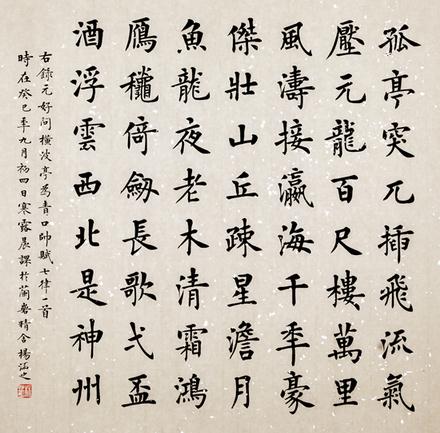 孤亭突兀插飛流氣
壓元龍百尺樓萬里
風濤接瀛海千秊豪
傑壯山丘疎星澹月
魚龍夜老木清霜鴻
鴈穐倚劒長歌弌盃
酒浮雲西北是神州
右錄元好問橫波亭為青口帥賦七律一首
時在癸巳年九月初四日寒露晨課於蘭精舍楊之